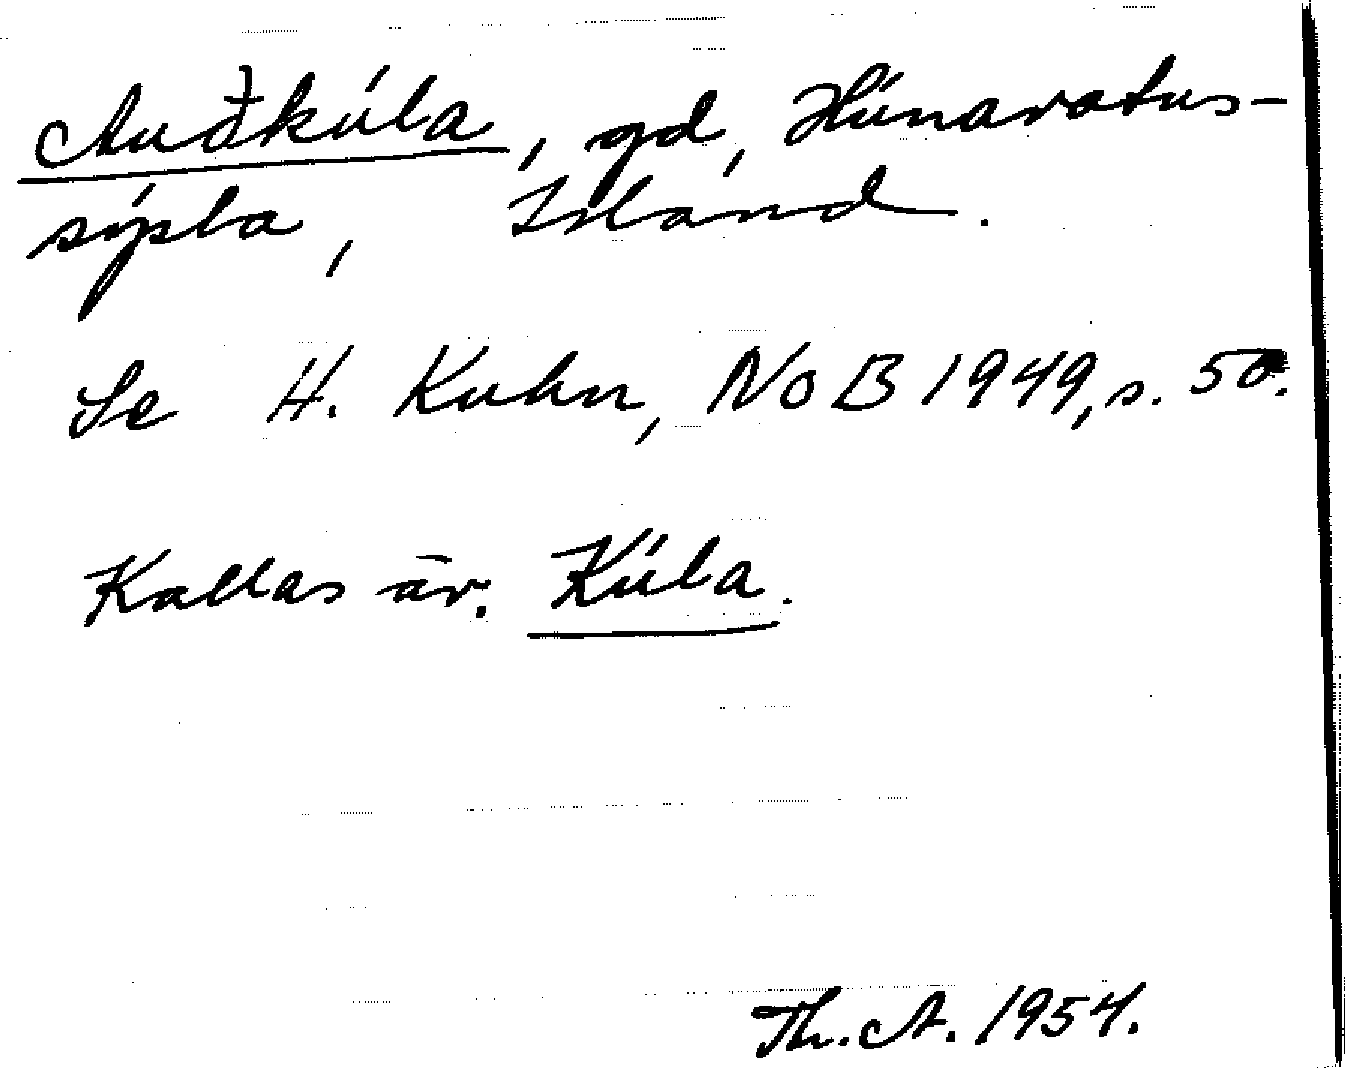 Auðkúla, gd, Húnavatns-
sýsla, Island.
Se H. Kuhn, NoB 1949, s. 50.
Kallas äv. Kúla.
Th. A. 1954.